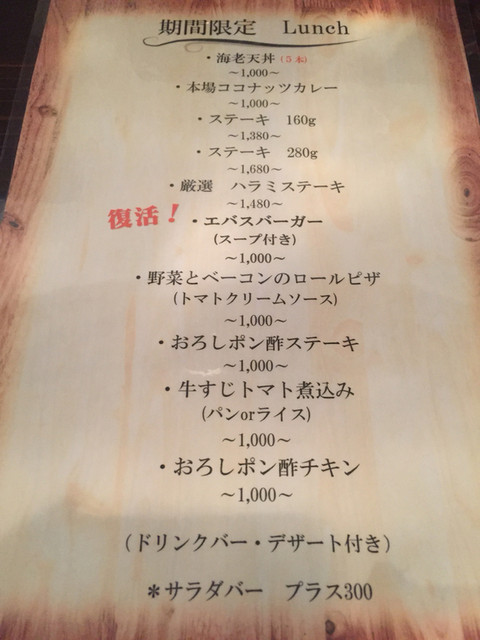 期間限定 Lunch
・海老天丼(5本)
～1,000～
・本場ココナッツカレー
～1,000～
・ステーキ 160g
～1,380～
・ステーキ 280g
～1,680～
・厳選 ハラミステーキ
～1,480～
復活！ ・エバスバーガー
(スープ付き)
～1,000～
・野菜とベーコンのロールピザ
(トマトクリームソース)
～1,000～
・おろしポン酢ステーキ
～1,000～
・牛すじトマト煮込み
(パンorライス)
～1,000～
・おろしポン酢チキン
～1,000～
(ドリンクバー・デザート付き)
＊サラダバー プラス300